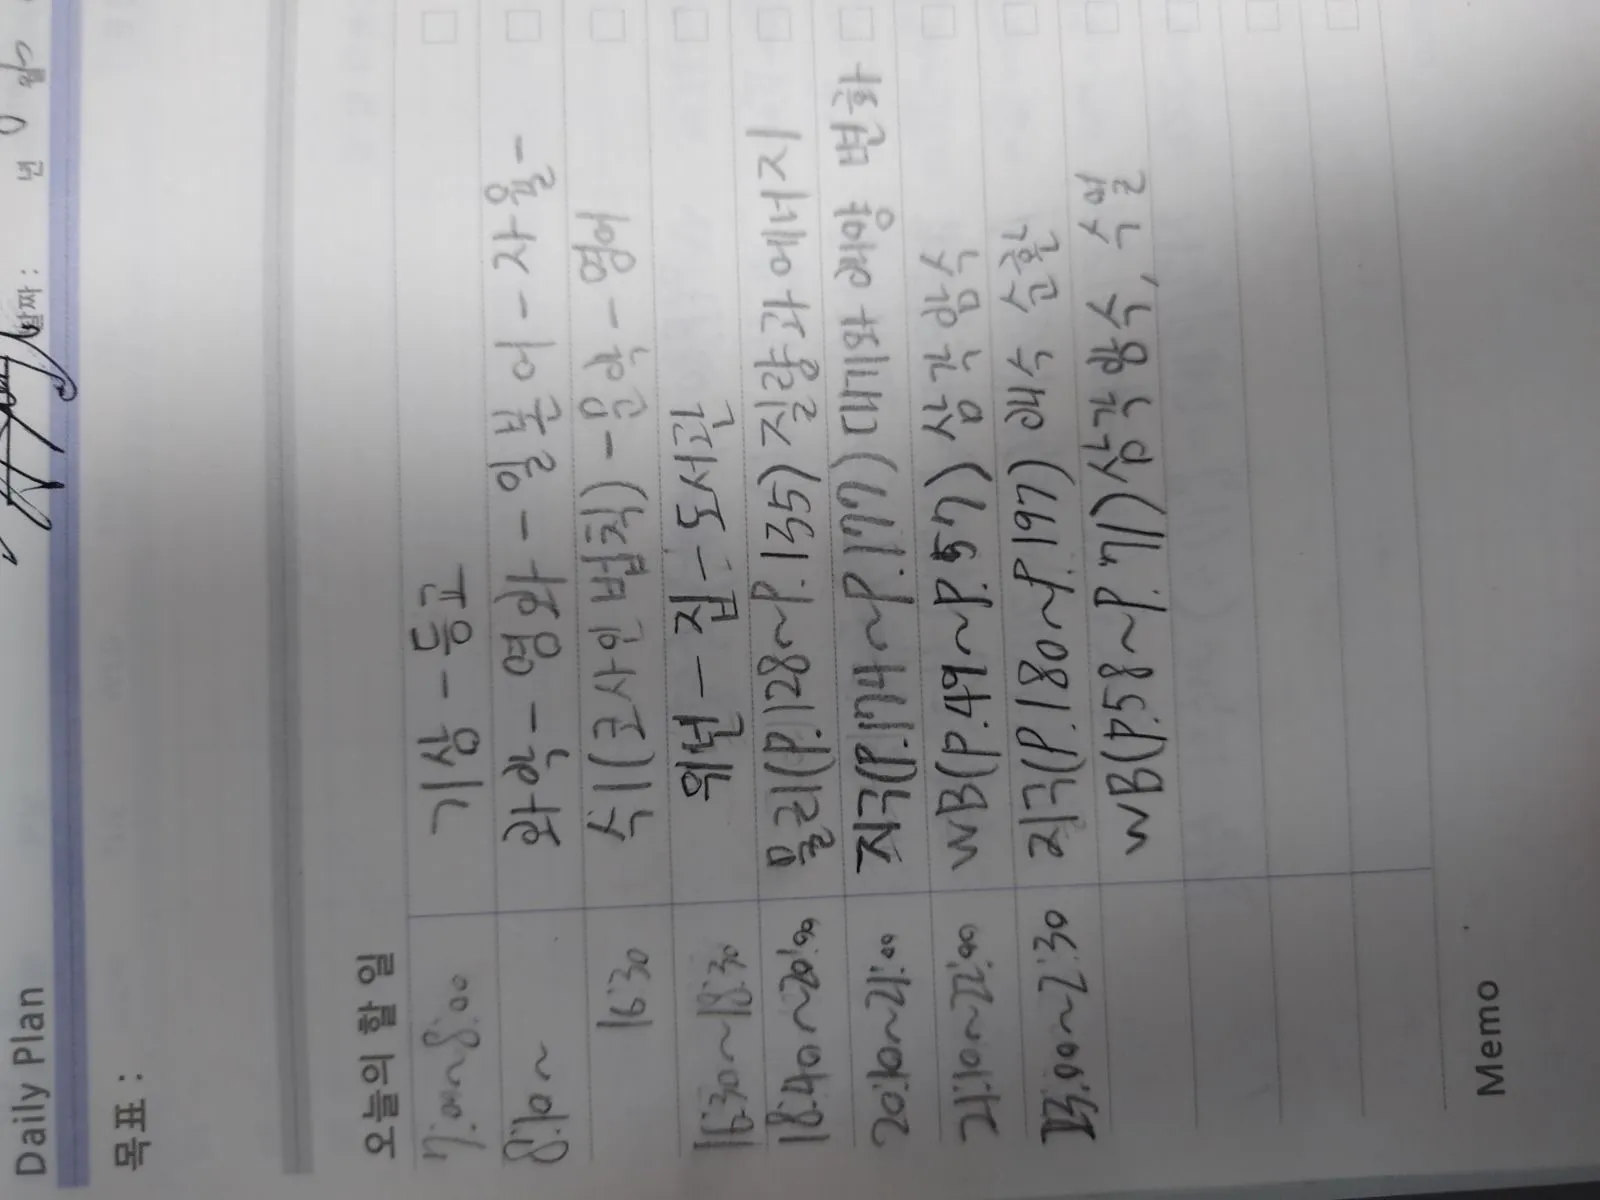 Daily Plan
날짜 : 년 월
목표 :
오늘의 할 일
7:00~8:00 기상-등교
8:10~ 화학-영화-일본어-자율-
16:30 수1(코사인법칙)-문학-영어
16:30~18:30 위런-집-도서관
18:40~20:00 물리(P.128~P.135) 질량과 에너지
20:10~21:00 지구(P.174~P.177) 대기와 해양 변화
21:10~22:00 WB(P.49~P.57) 삼각함수
23:00~2:30 지구(P.180~P.197) 해수 순환
WB(P.58~P.71) 삼각함수, 수열
Memo